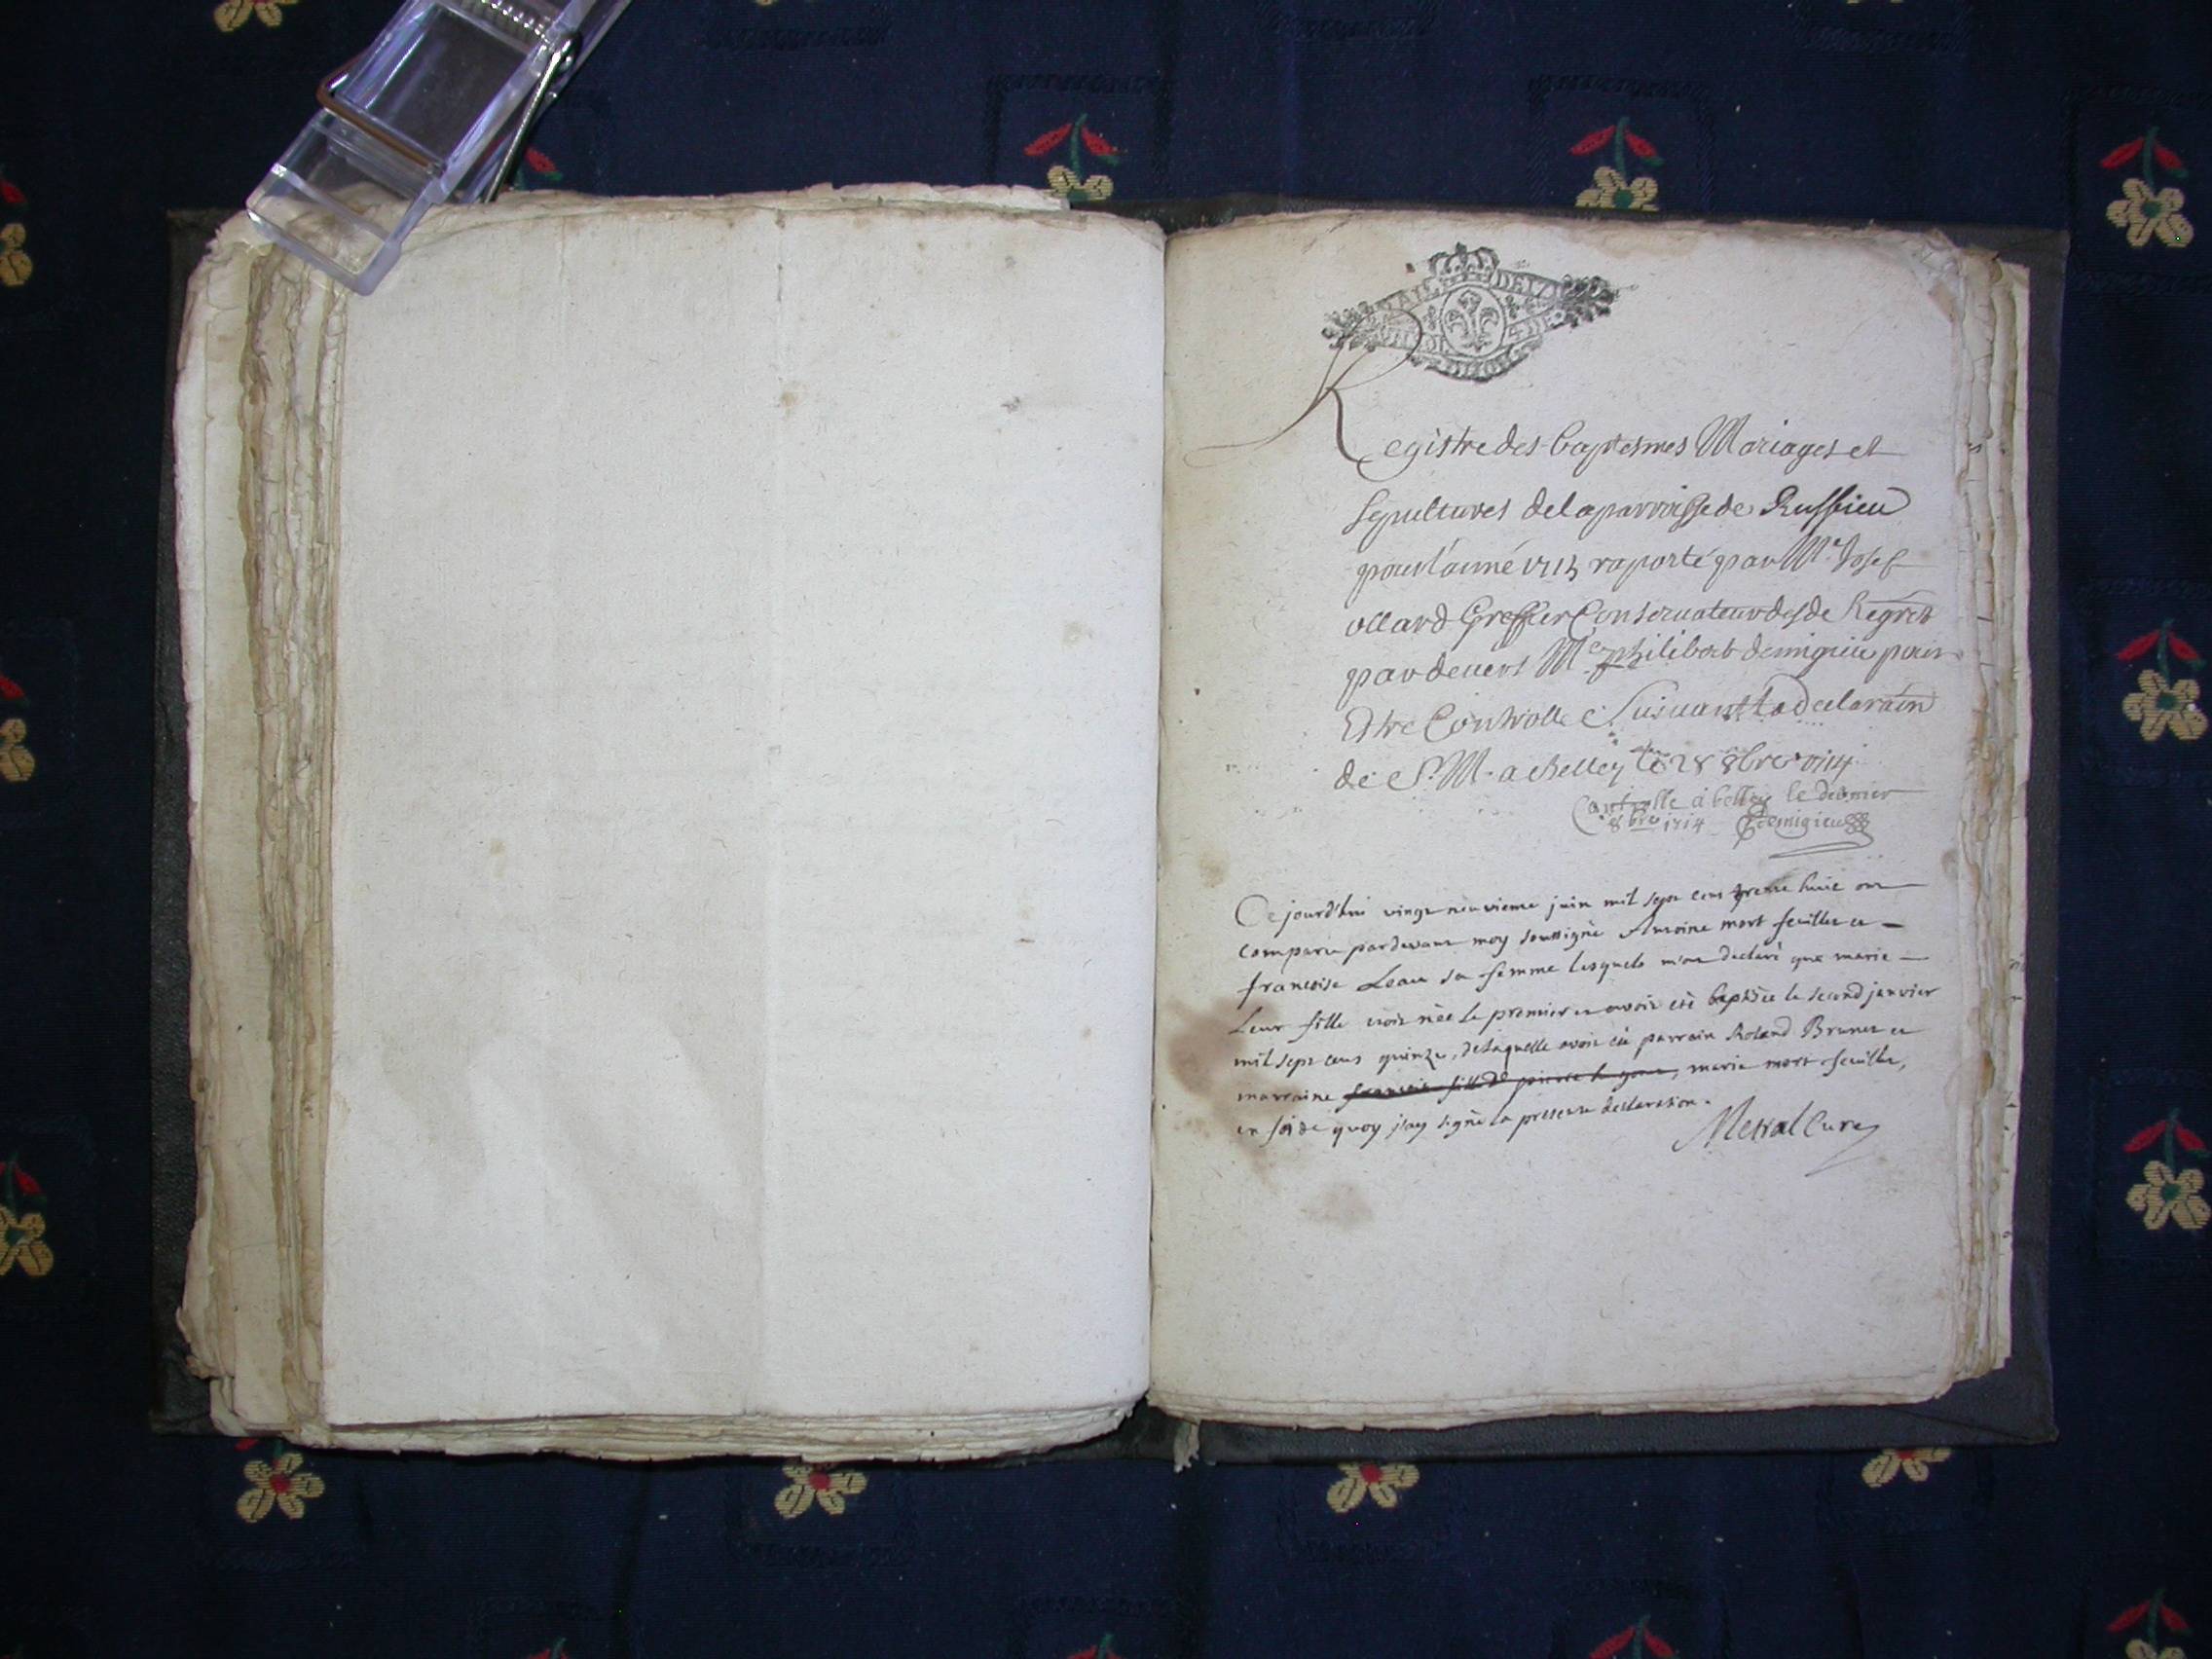 Registre des baptesmes Mariages et
sepultures de la parroisse de Ruffieu
pour l'anné raporté par Me. Josef
ollard Greffier Conservateur desde Regres
par devers Me. philibert demigieu pour
Estre Controlle Suivant la declaraôn
de S. M. a Belley le 28 8bre 1714
Controlle a belley le dernier
8bre 1714 demigieu
Ce jourd'hui vingt neuvieme juin mil sept cens trente huit ont
comparu pardevant moy soussigné Antoine mort feuillet et
francoise sa femme lesquels m'ont declaré que marie
Leur fille etoit née le premier et avoir eté baptisée le second janvier
mil sept cens quinze, de laquelle avoit eu parrain Roland Brunet et
marraine francoise fille de pierre, marie mort-feuillet,
en foi de quoy j'ay signé la presente declaration.
Mestral Curé